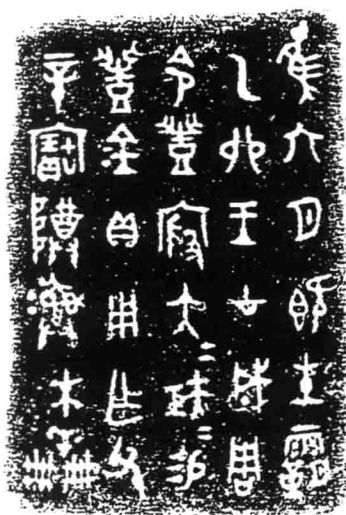 隹六月既生霸
乙卯王才成周
令豐𡪢大=矩=易
豐金貝用乍父
辛寶尊彝木羊冊冊